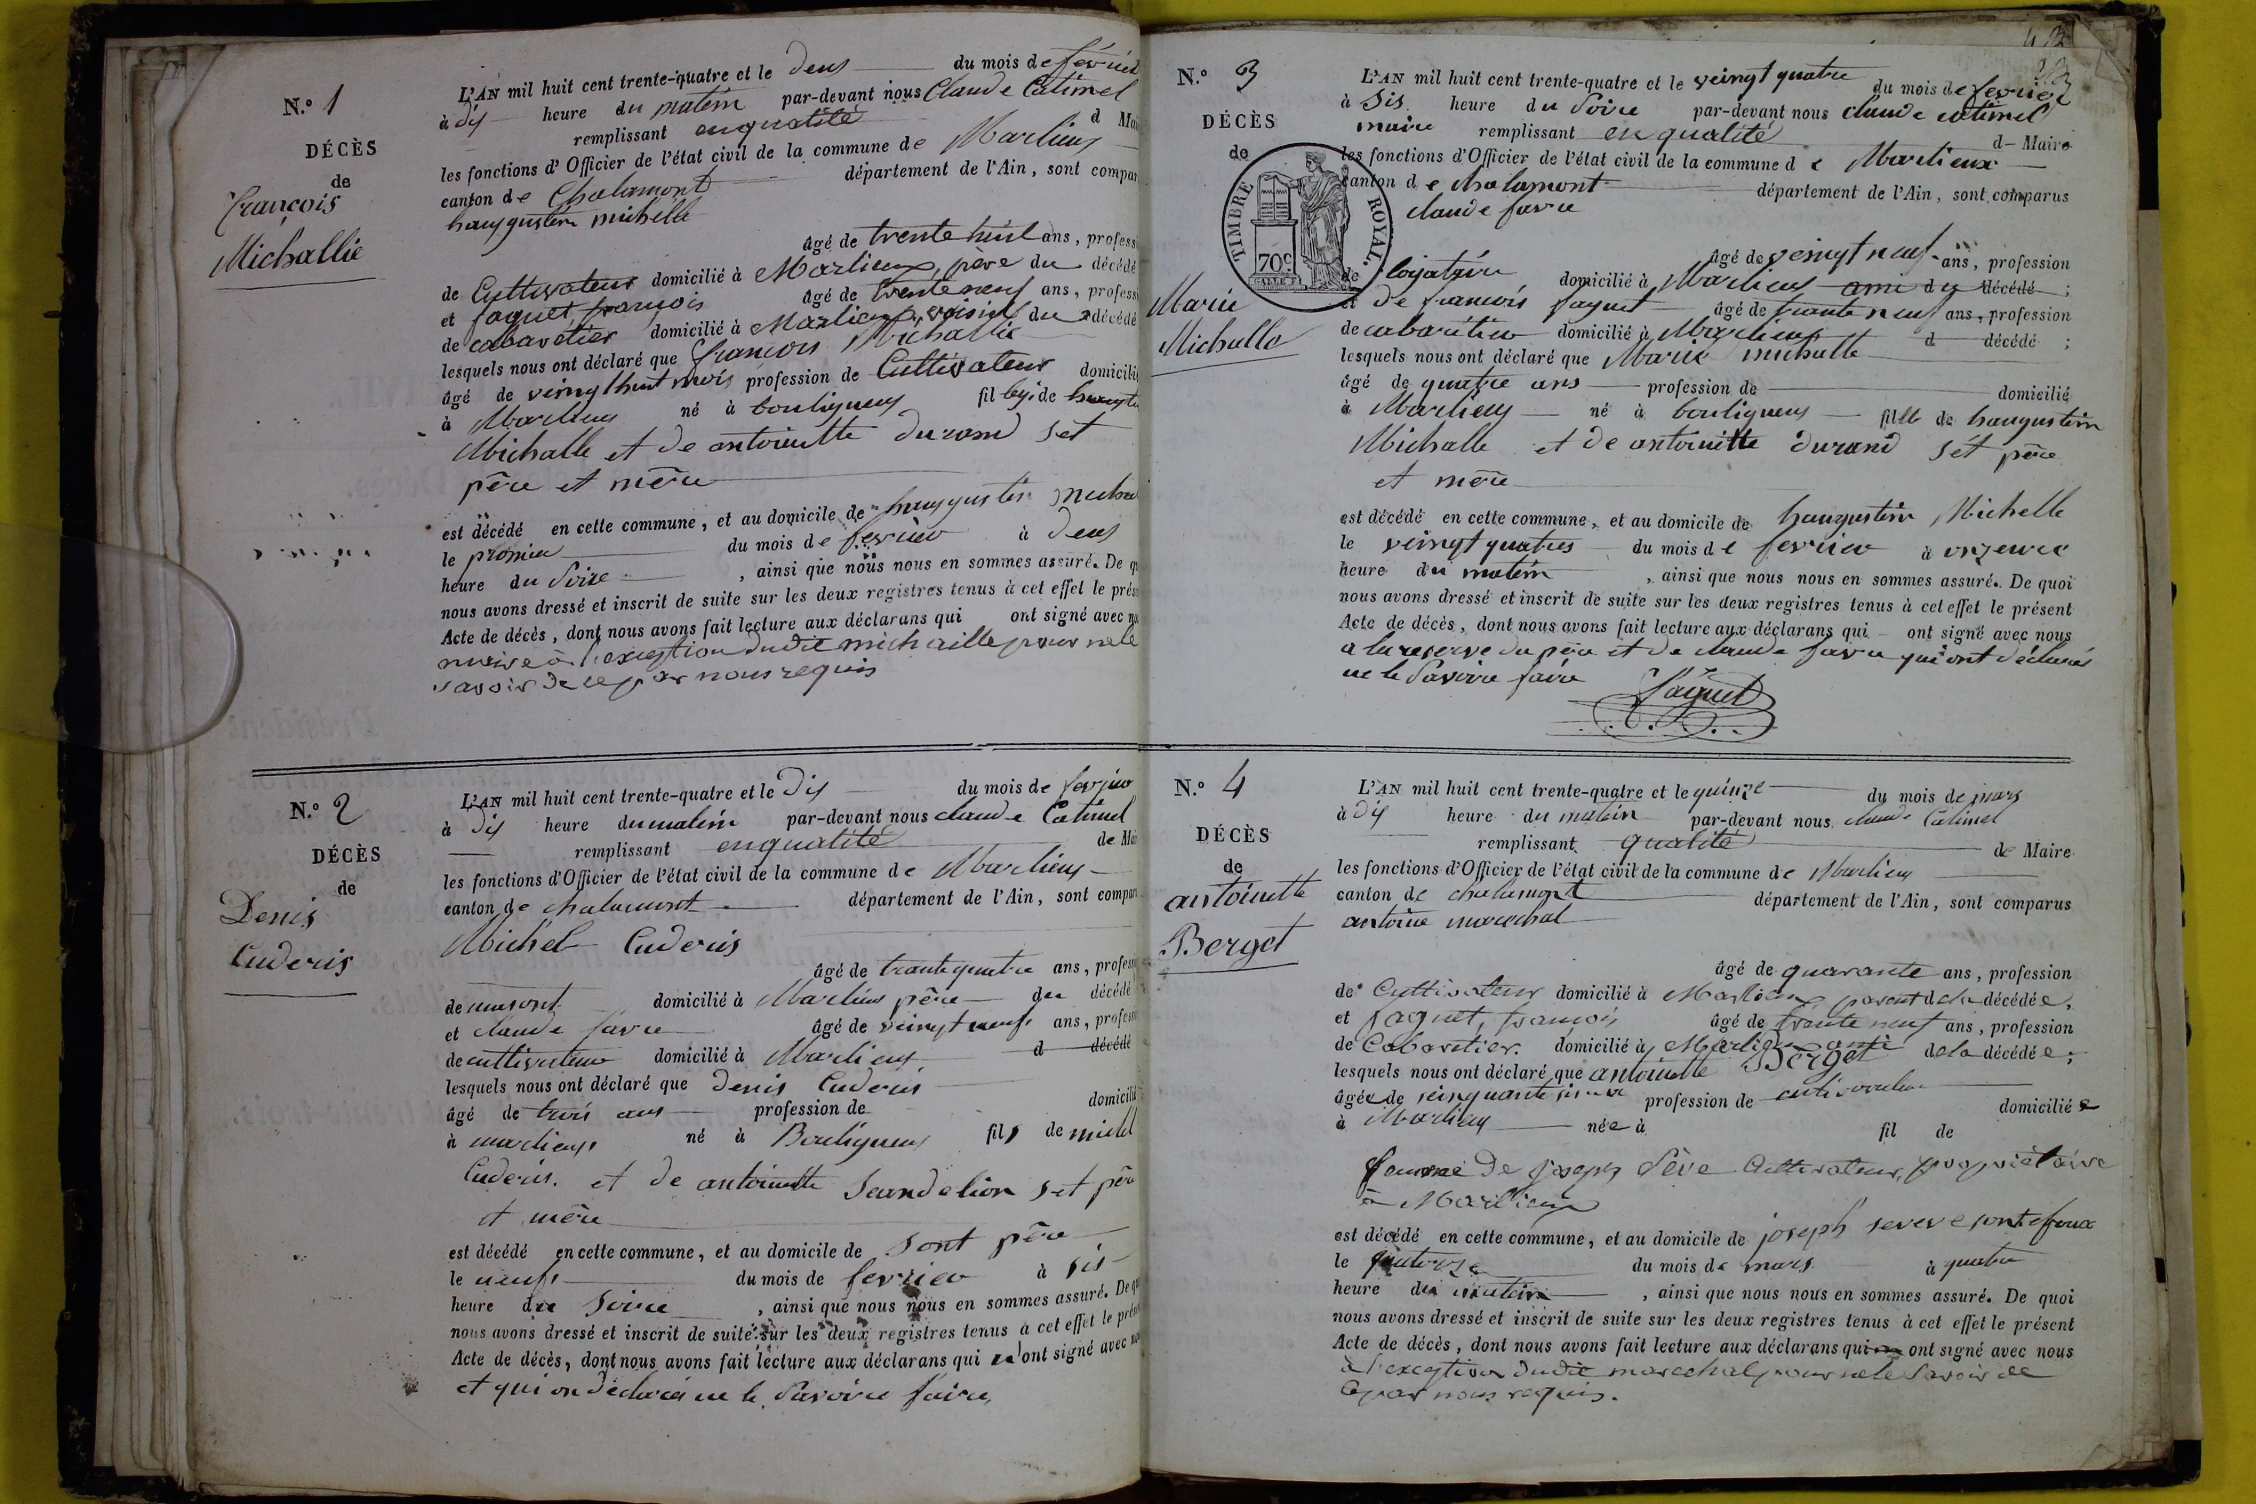 N.º 1
DÉCÈS
de
François
Michallie
L'AN mil huit cent trente-quatre et le deus du mois de févrie
à dix heure du matin par-devant nous Claude Catimel
remplissant enqualité d Mai
les fonctions d'Officier de l'état civil de la commune de Marlieus
canton de Chalamont département de l'Ain, sont compar
haugustin michelle
âgé de trente huit ans, profess
de Cultivateur domicilié à Marlieux, père du décédé
et faquet, françois âgé de trente neuf ans, profess
de cabaretier domicilié à Marlieux, voisin du décédé
lesquels nous ont déclaré que françois Michallie
âgé de veingt huit mois profession de Cultivateur domicilié
à Marlieus né à bouligneus fil leg. de haugus
Michalle et de antoinette durand set
père et mère
est décédé en cette commune, et au domicile de haugustin micha
le promier du mois de fevrier à deus
heure du Soire, ainsi que nous nous en sommes assuré. De q
nous avons dressé et inscrit de suite sur les deux registres tenus à cet effet le prése
Acte de décès, dont nous avons fait lecture aux déclarans qui ont signé avec no
maire à l'exception dudit michaille pour ne le
savoir de ce par nous requis
N.º 2
DÉCÈS
de
Denis
Cuderis
L'AN mil huit cent trente-quatre et le dix du mois de fevrier
à dix heure du matin par-devant nous claude Catimel
remplissant enqualité de Mai
les fonctions d'Officier de l'état civil de la commune de Marlieus
canton de chalamont département de l'Ain, sont compar
Michel Cuderis
âgé de trante quatre ans, profess
de domicilié à Marlieus père du décédé
et claude favre âgé de veingt neufs ans, profess
de cultivateur domicilié à Marlieus d décédé
lesquels nous ont déclaré que denis Cuderis
âgé de trois ans profession de domicilié
à marlieus né à Bouligneus fils de michel
Cuderis. et de antoinette Jeandelion set père
et mère
est décédé en cette commune, et au domicile de sont père
le neufs du mois de fevrier à sis
heure du Soire, ainsi que nous nous en sommes assuré. De q
nous avons dressé et inscrit de suite sur les deux registres tenus à cet effet le prése
Acte de décès, dont nous avons fait lecture aux déclarans qui n'ont signé avec no
et qui on déclarés ne le Savoire faire
N.º 3
DÉCÈS
de
TIMBRE ROYAL
70c
Marie
Michalle
L'AN mil huit cent trente-quatre et le veingt quatre du mois de fevrier
à sis heure du Soire par-devant nous claude catimel
maire remplissant en qualité d Maire
les fonctions d'Officier de l'état civil de la commune de Marlieux
canton de chalamont département de l'Ain, sont comparus
claude favre
âgé de veingt neuf ans, profession
de domicilié à Marlieus ami du décédé ;
et de françois faquet âgé de trante neuf ans, profession
de cabaretier domicilié à Marlieus d décédé ;
lesquels nous ont déclaré que Marie michalle
âgé de quatre ans profession de domicilié
à Marlieus né à bouligneus fille de haugustin
Michalle et de antoinette durand sét père
et mère
est décédé en cette commune, et au domicile de haugustin Michelle
le veingt quatres du mois de fevrier à onzeure
heure du matin, ainsi que nous nous en sommes assuré. De quoi
nous avons dressé et inscrit de suite sur les deux registres tenus à cet effet le présent
Acte de décès, dont nous avons fait lecture aux déclarans qui ont signé avec nous
a la reserve du père et de claude favre qui ont déclarés
ne le Savoire faire faquet
N.º 4
DÉCÈS
de
antoinette
Berget
L'AN mil huit cent trente-quatre et le quinze du mois de mars
à dix heure du matin par-devant nous claude Catimel
remplissant qualité de Maire
les fonctions d'Officier de l'état civil de la commune de Marlieus
canton de chalamont département de l'Ain, sont comparus
antoine marechal
âgé de quarante ans, profession
de Cultivateur domicilié à Marlieux parent de la décédée,
et faquet, françois âgé de trente neuf ans, profession
de Cabaretier. domicilié à Marlieux ami de la décédée ;
lesquels nous ont déclaré que antoinette Berget
âgée de profession de domiciliée
à Marlieus née à fil de
femme de joseph Sève Cultivateur, propriétaire
à Marlieux
est décédé en cette commune, et au domicile de joseph
le quatorze du mois de mars à quatre
heure du matin, ainsi que nous nous en sommes assuré. De quoi
nous avons dressé et inscrit de suite sur les deux registres tenus à cet effet le présent
Acte de décès, dont nous avons fait lecture aux déclarans qui ont signé avec nous
à l'exception dudit marechal pour ne le Savoir de
ce par nous requis.